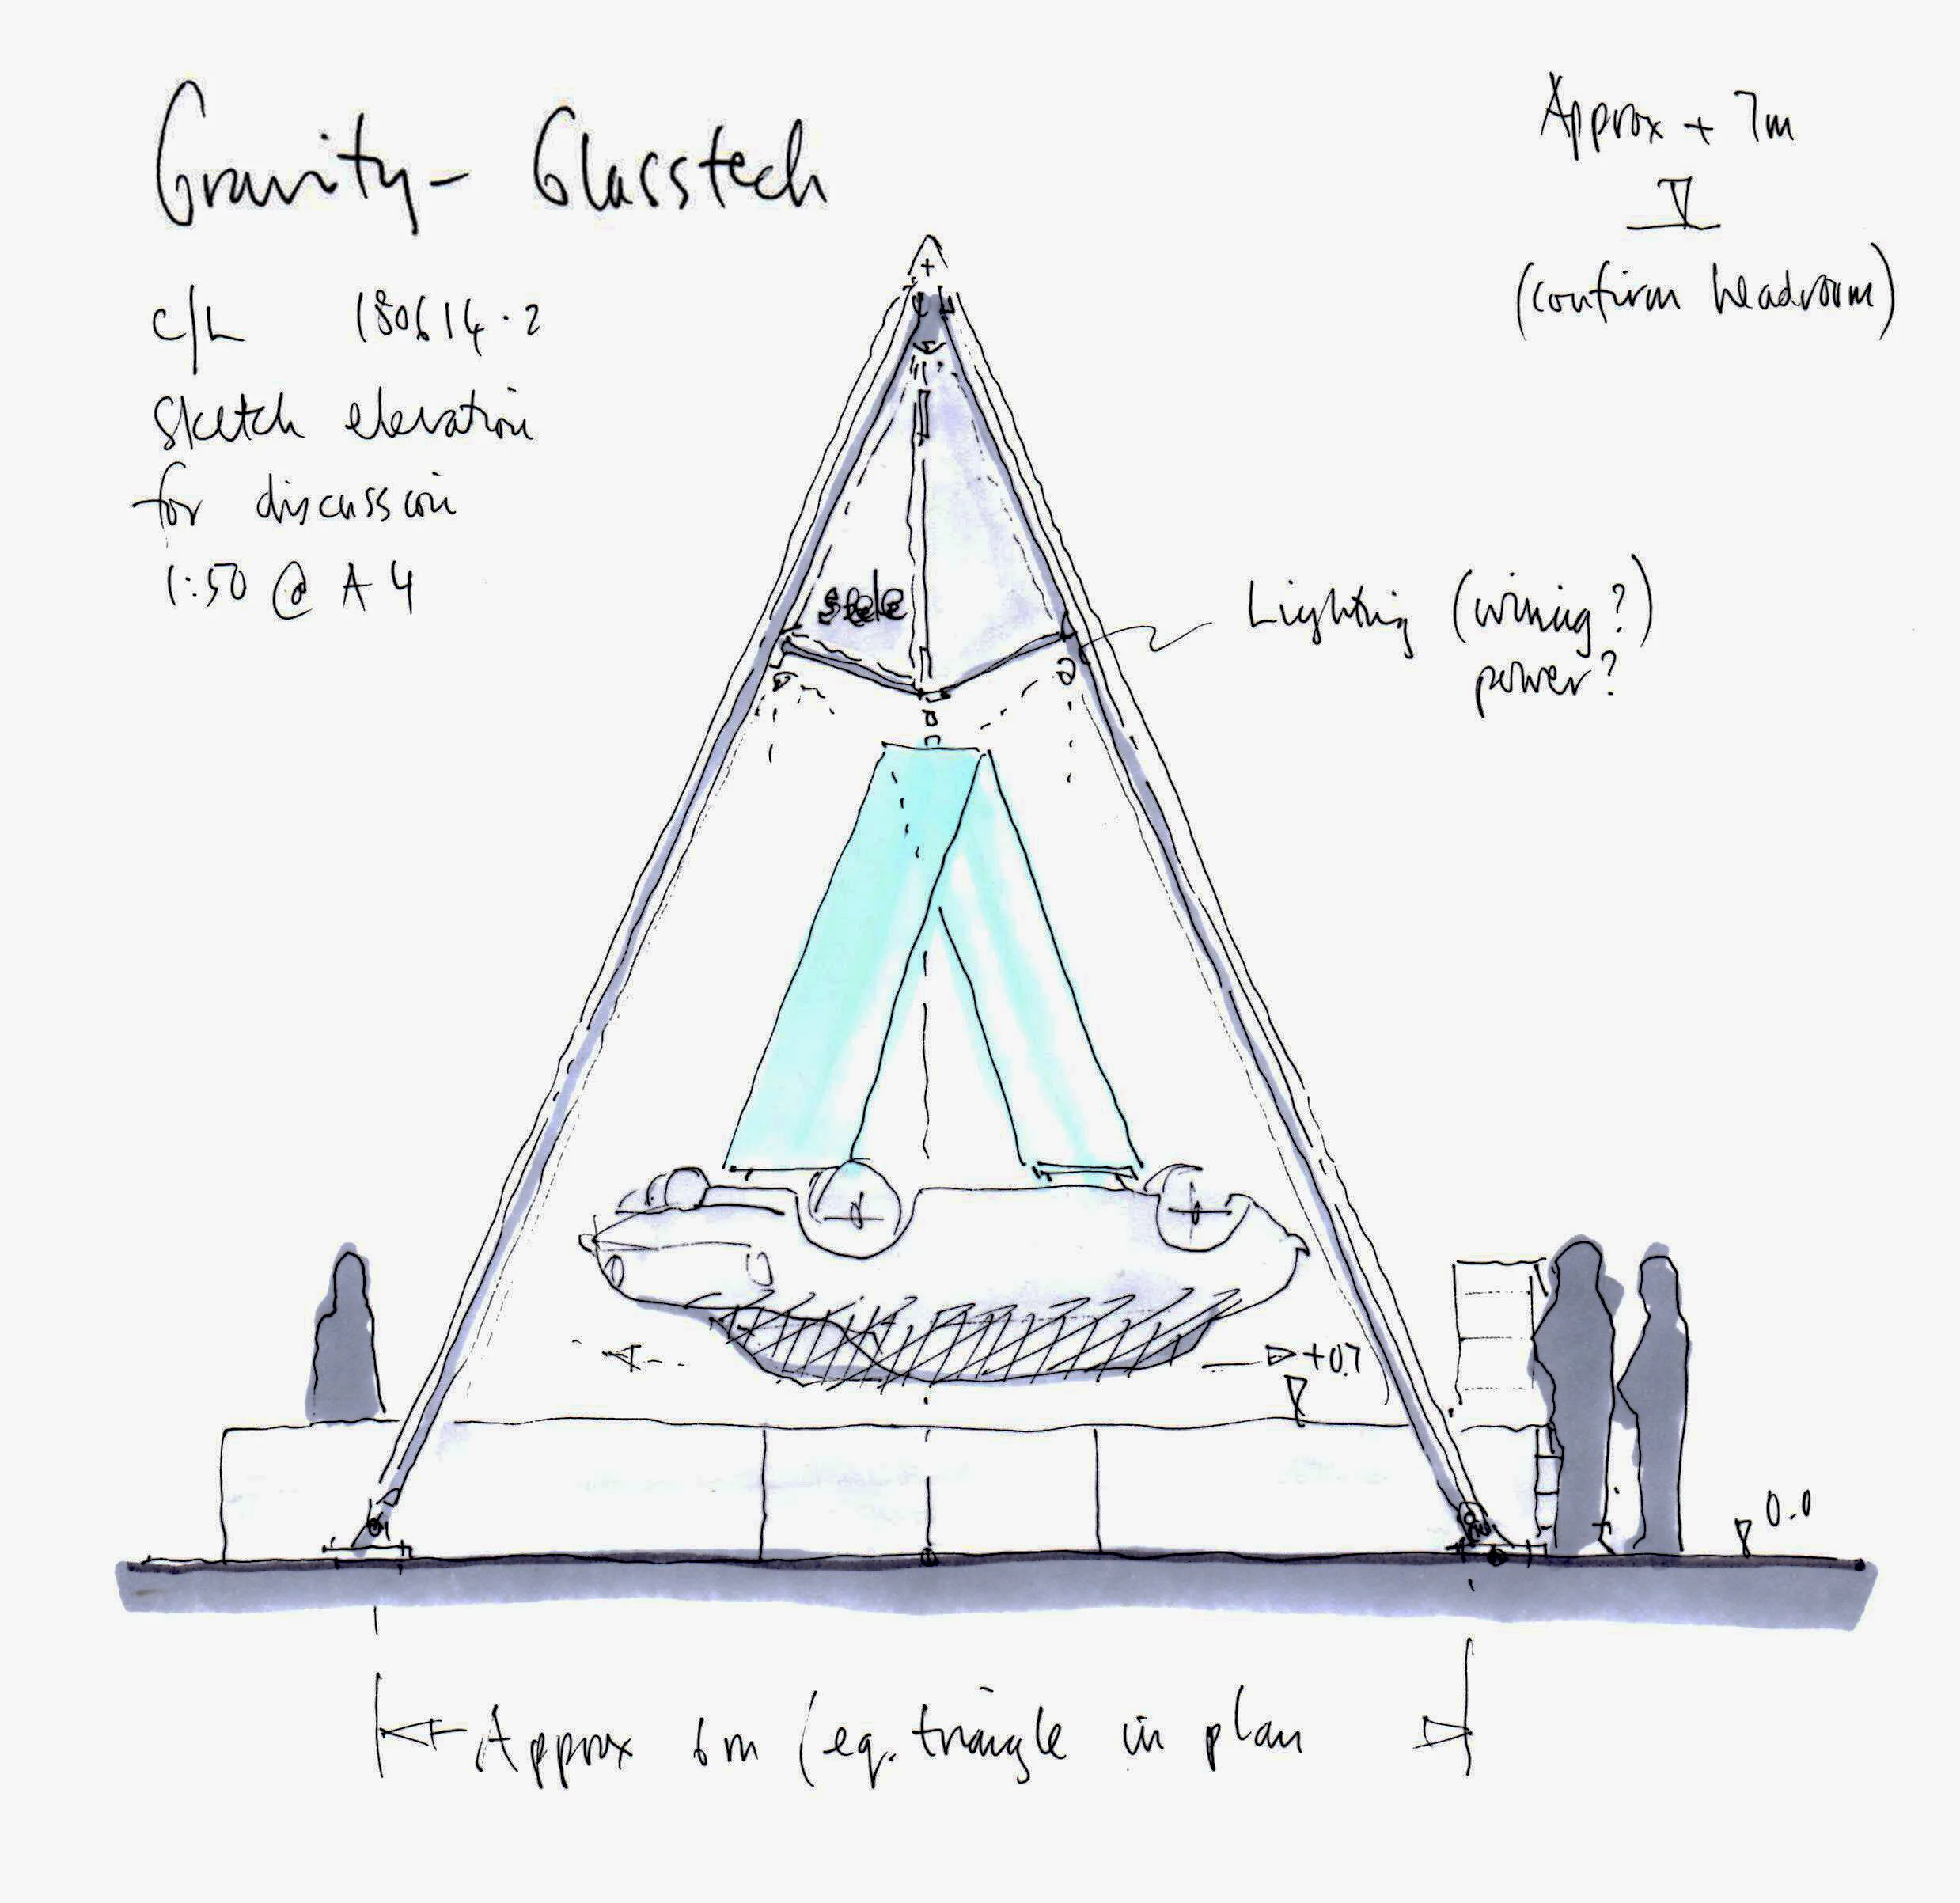 Gravity - Glasstech
C/L 180614.2
Sketch elevation
for discussion
1:50 @ A4
Approx + 7m
(confirm headroom)
Lighting (wiring?)
power?
+0.7
0.0
Approx 6m (eq. triangle in plan